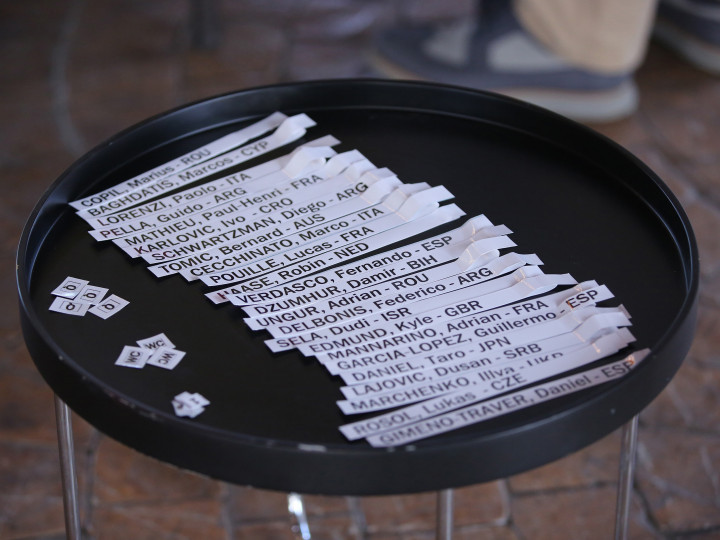 COPIL, Marius - ROU
BAGHDATIS, Marcos - CYP
LORENZI, Paolo - ITA
PELLA, Guido - ARG
MATHIEU, Paul-Henri - FRA
KARLOVIC, Ivo - CRO
SCHWARTZMAN, Diego - ARG
TOMIC, Bernard - AUS
CECCHINATO, Marco - ITA
POUILLE, Lucas - FRA
HAASE, Robin - NED
VERDASCO, Fernando - ESP
DZUMHUR, Damir - BIH
UNGUR, Adrian - ROU
DELBONIS, Federico - ARG
SELA, Dudi - ISR
EDMUND, Kyle - GBR
MANNARINO, Adrian - FRA
GARCIA-LOPEZ, Guillermo - ESP
DANIEL, Taro - JPN
LAJOVIC, Dusan - SRB
MARCHENKO, Illya - UKR
ROSOL, Lukas - CZE
GIMENO TRAVER, Daniel - ESP
Q
Q
Q
Q
WC
WC
WC